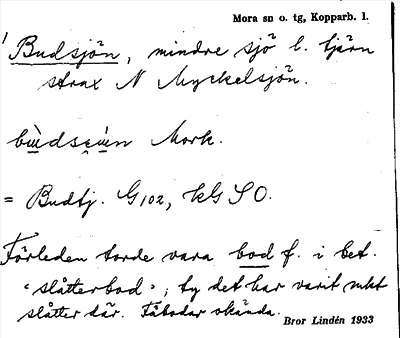 Mora sn o. tg, Kopparb. l.
1 Budsjön, mindre sjö l. tjärn
strax N Myckelsjön.
Mork.
= Budtj. G102, kG SO.
Förleden torde vara bod f. i bet.
"slåtterbod"; ty det har varit mkt
slåtter där. Fäbodar okända.
Bror Lindén 1933